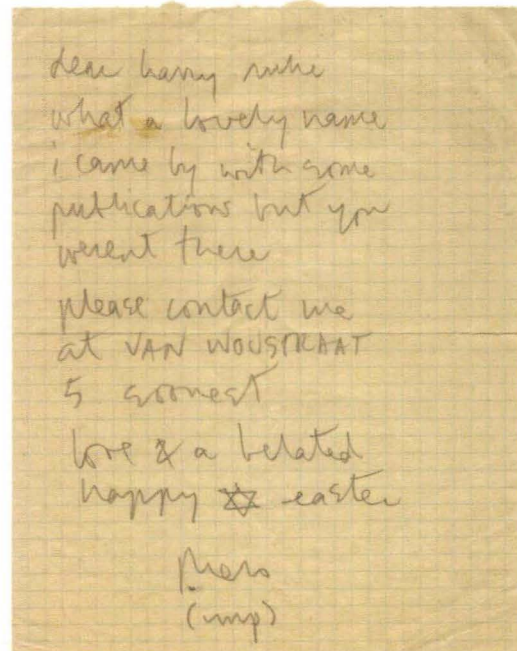 dear harry ruhe
what a lovely name
i came by with some
publications but you
werent there
please contact me
at VAN WOUSTRAAT
5 soonest
love & a belated
happy ✡ easter
(imp)